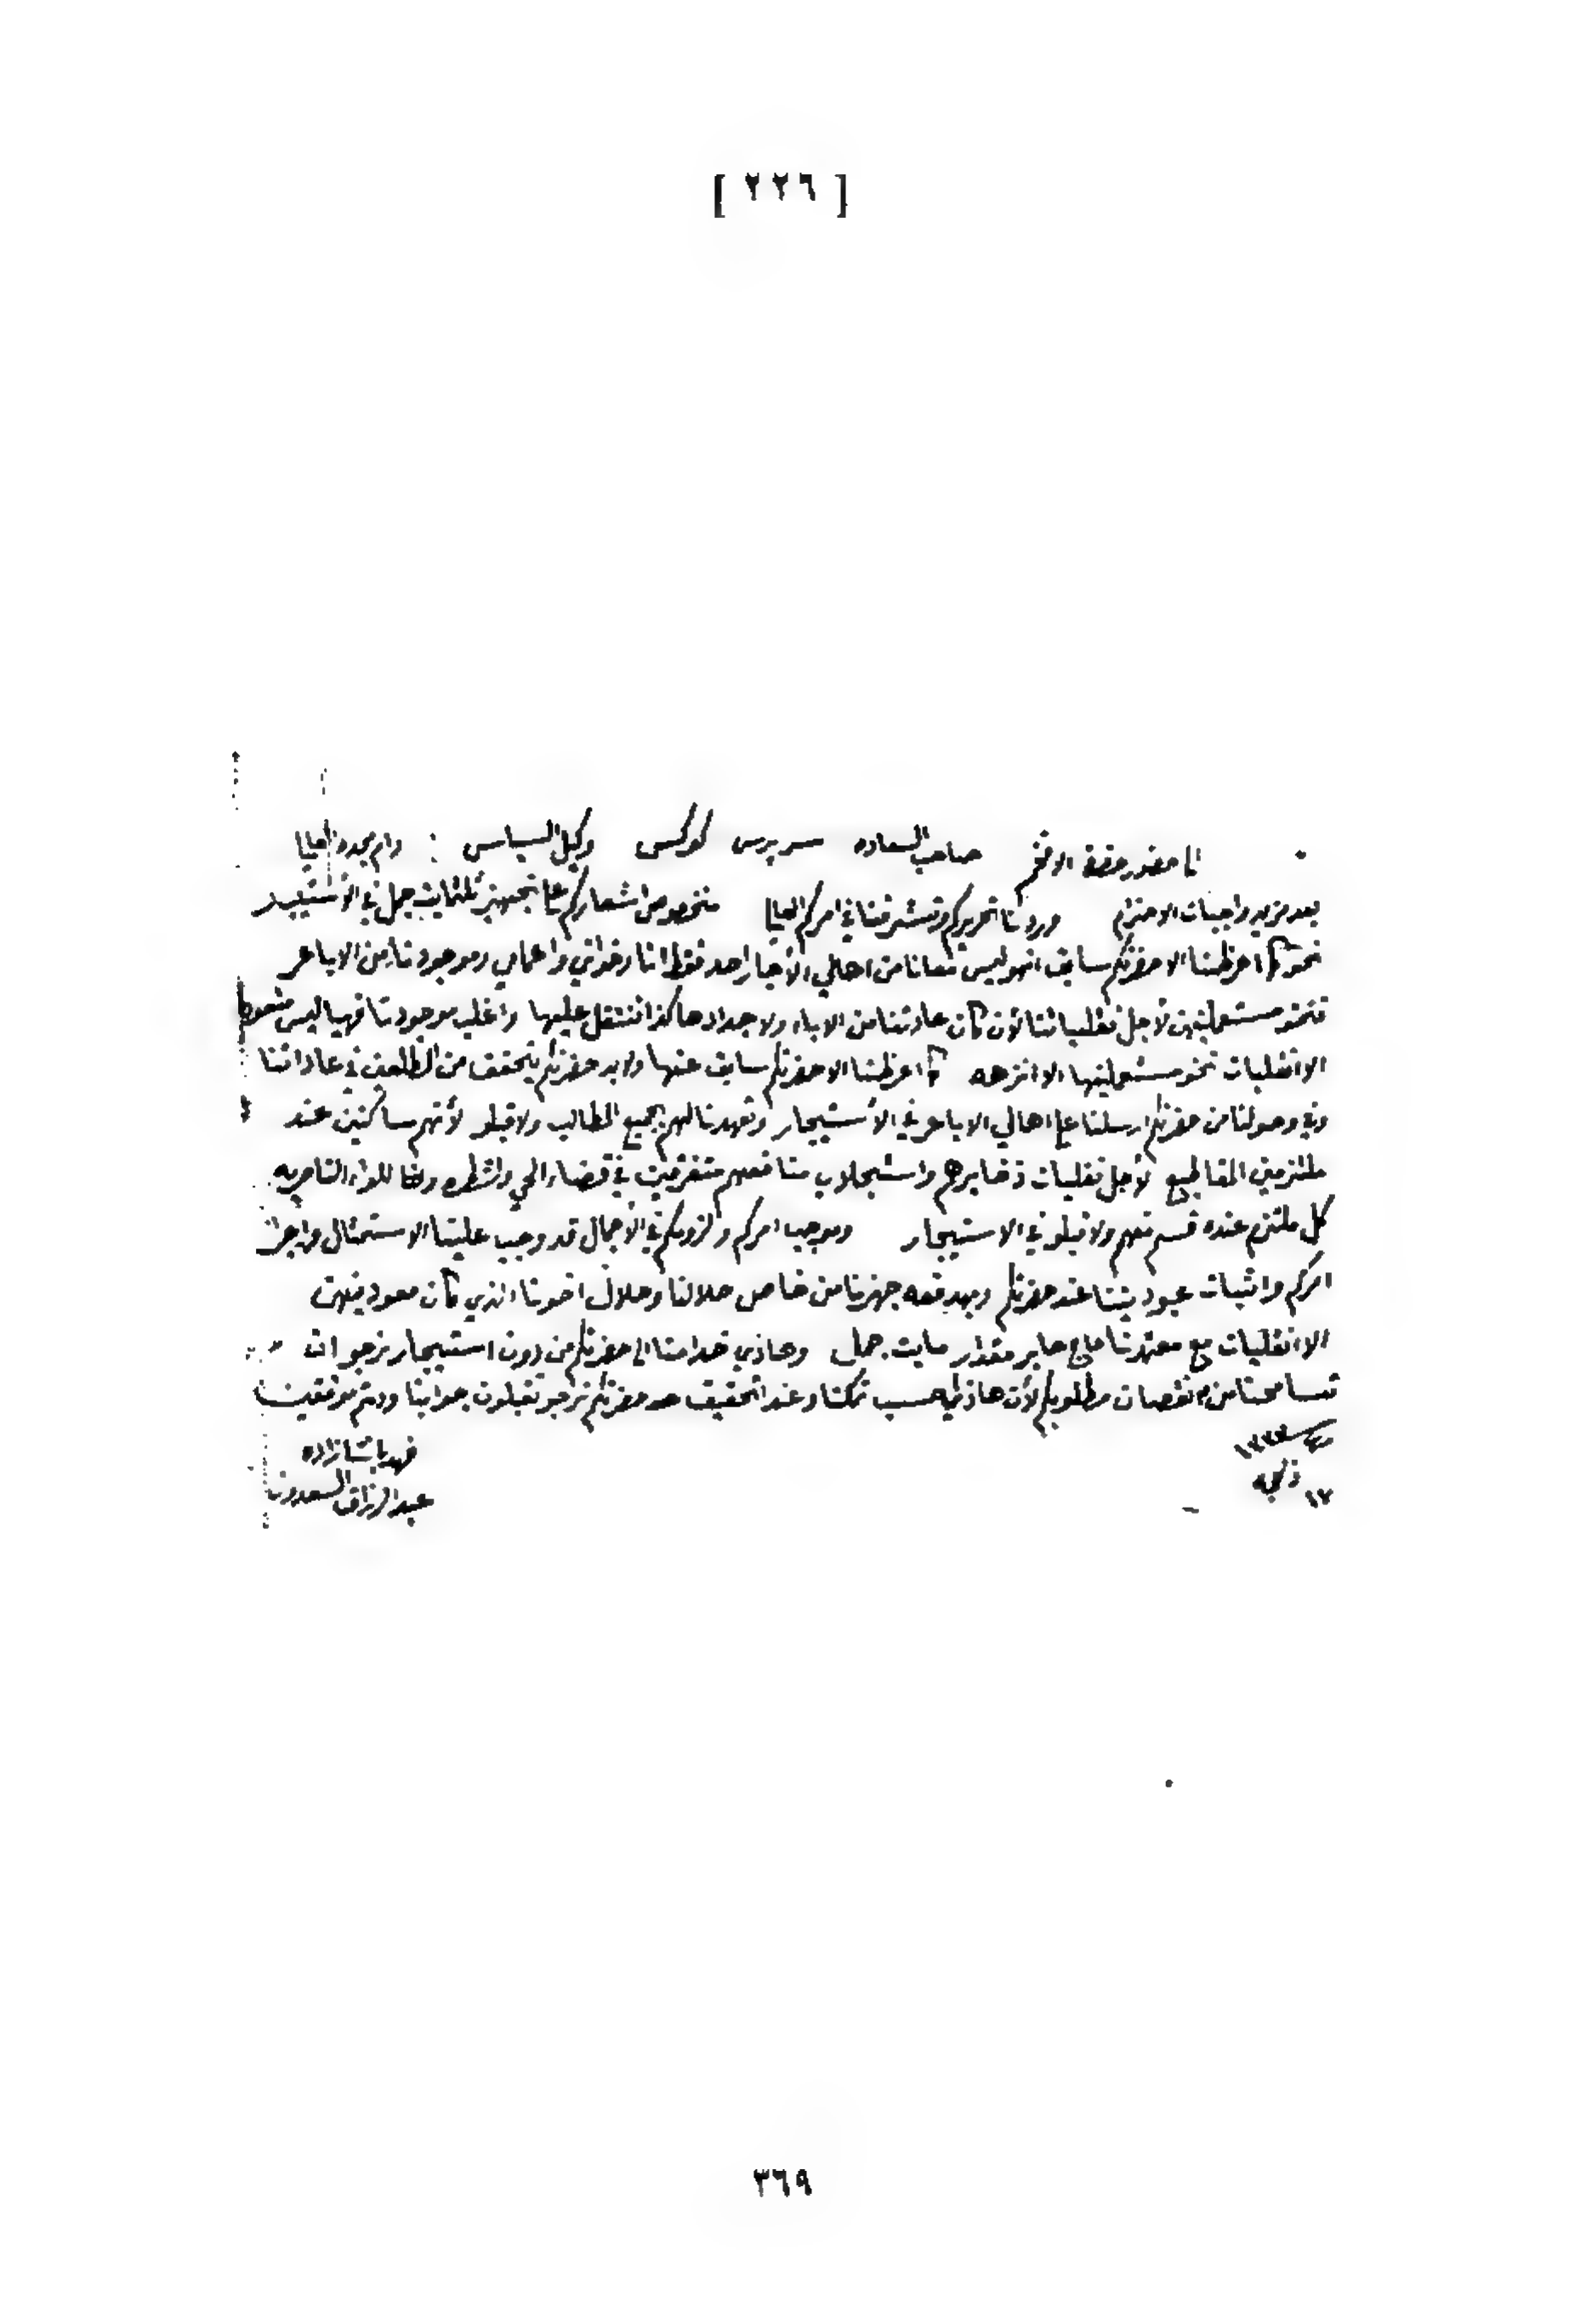 [ ٢٢٦ ]
الا حضور حضرة الافخم صاحب السعاده سر برسي كوكس وكيل السياسي : دام مجده العالي
بعد مزيد واجبات الاحترام وردنا تحريركم وتشرفنا في امركم العالي منخصوص اشعاركم على تجهيز ثلثمايت جمل في الأستيجار
نحو كما عرظنا الا حضرتكم سابق انهو ليس معانا من اهالي الأجيار احد فقط انا وخواني واعمامي وموجودنا من الاباعر
فنحنو مستعملينهن لأجل نقلياتنا لأن كان عادتنا من الاباء ولاجداد هاكذا ننتقل عليها واغلب موجودنا فهيا ليس متعوده
الا نقليات نحنو مستعملينها الا انزحه كما عرظنا الا حضرتكم سابق عنها ولابد حضرتكم يتحقق من المطلعين في عاداتنا
وفي وصولنا من حضرتكم ارسلنا على اهالي الاباعر في الأستيجار وتعهدنا لهم بجميع المطاليب ولا قبلو لأنهم ساكنين عند
ملتزمين المقاطيع لأجل نقليات ذخايرهم واستجلاب منافعهم متفرقين في قضاء الحي والشطره للواء الناصريه
كل ملتزم عنده قسم منهم ولا قبلو في الاستيجار وموجب امركم ولزومكم في الأجمال قد وجب علينا الاستمثال واجراء
امركم واثبات عبوديتنا عند حضرتكم وبهدفعه جهزنا من خاص حلالنا وحلال اخوتنا الذي كان معودينهن
الا نقليات مع معتمدنا حاج جابر مقدار مايت جمل وهاذي خدامتنا الى حضرتكم من دون استيجار نرجو ان
تسامحنا من نقصان مطلوبكم لأن هاذي حسب تمكننا وعند التحقيق حضرتكم نرجو تقبلون جوابنا ودمتم موفقين
١٣٣٣
١٧ ذلحجه
فهد باشا زاده
عبدالرزاق السعدون
٣٦٩